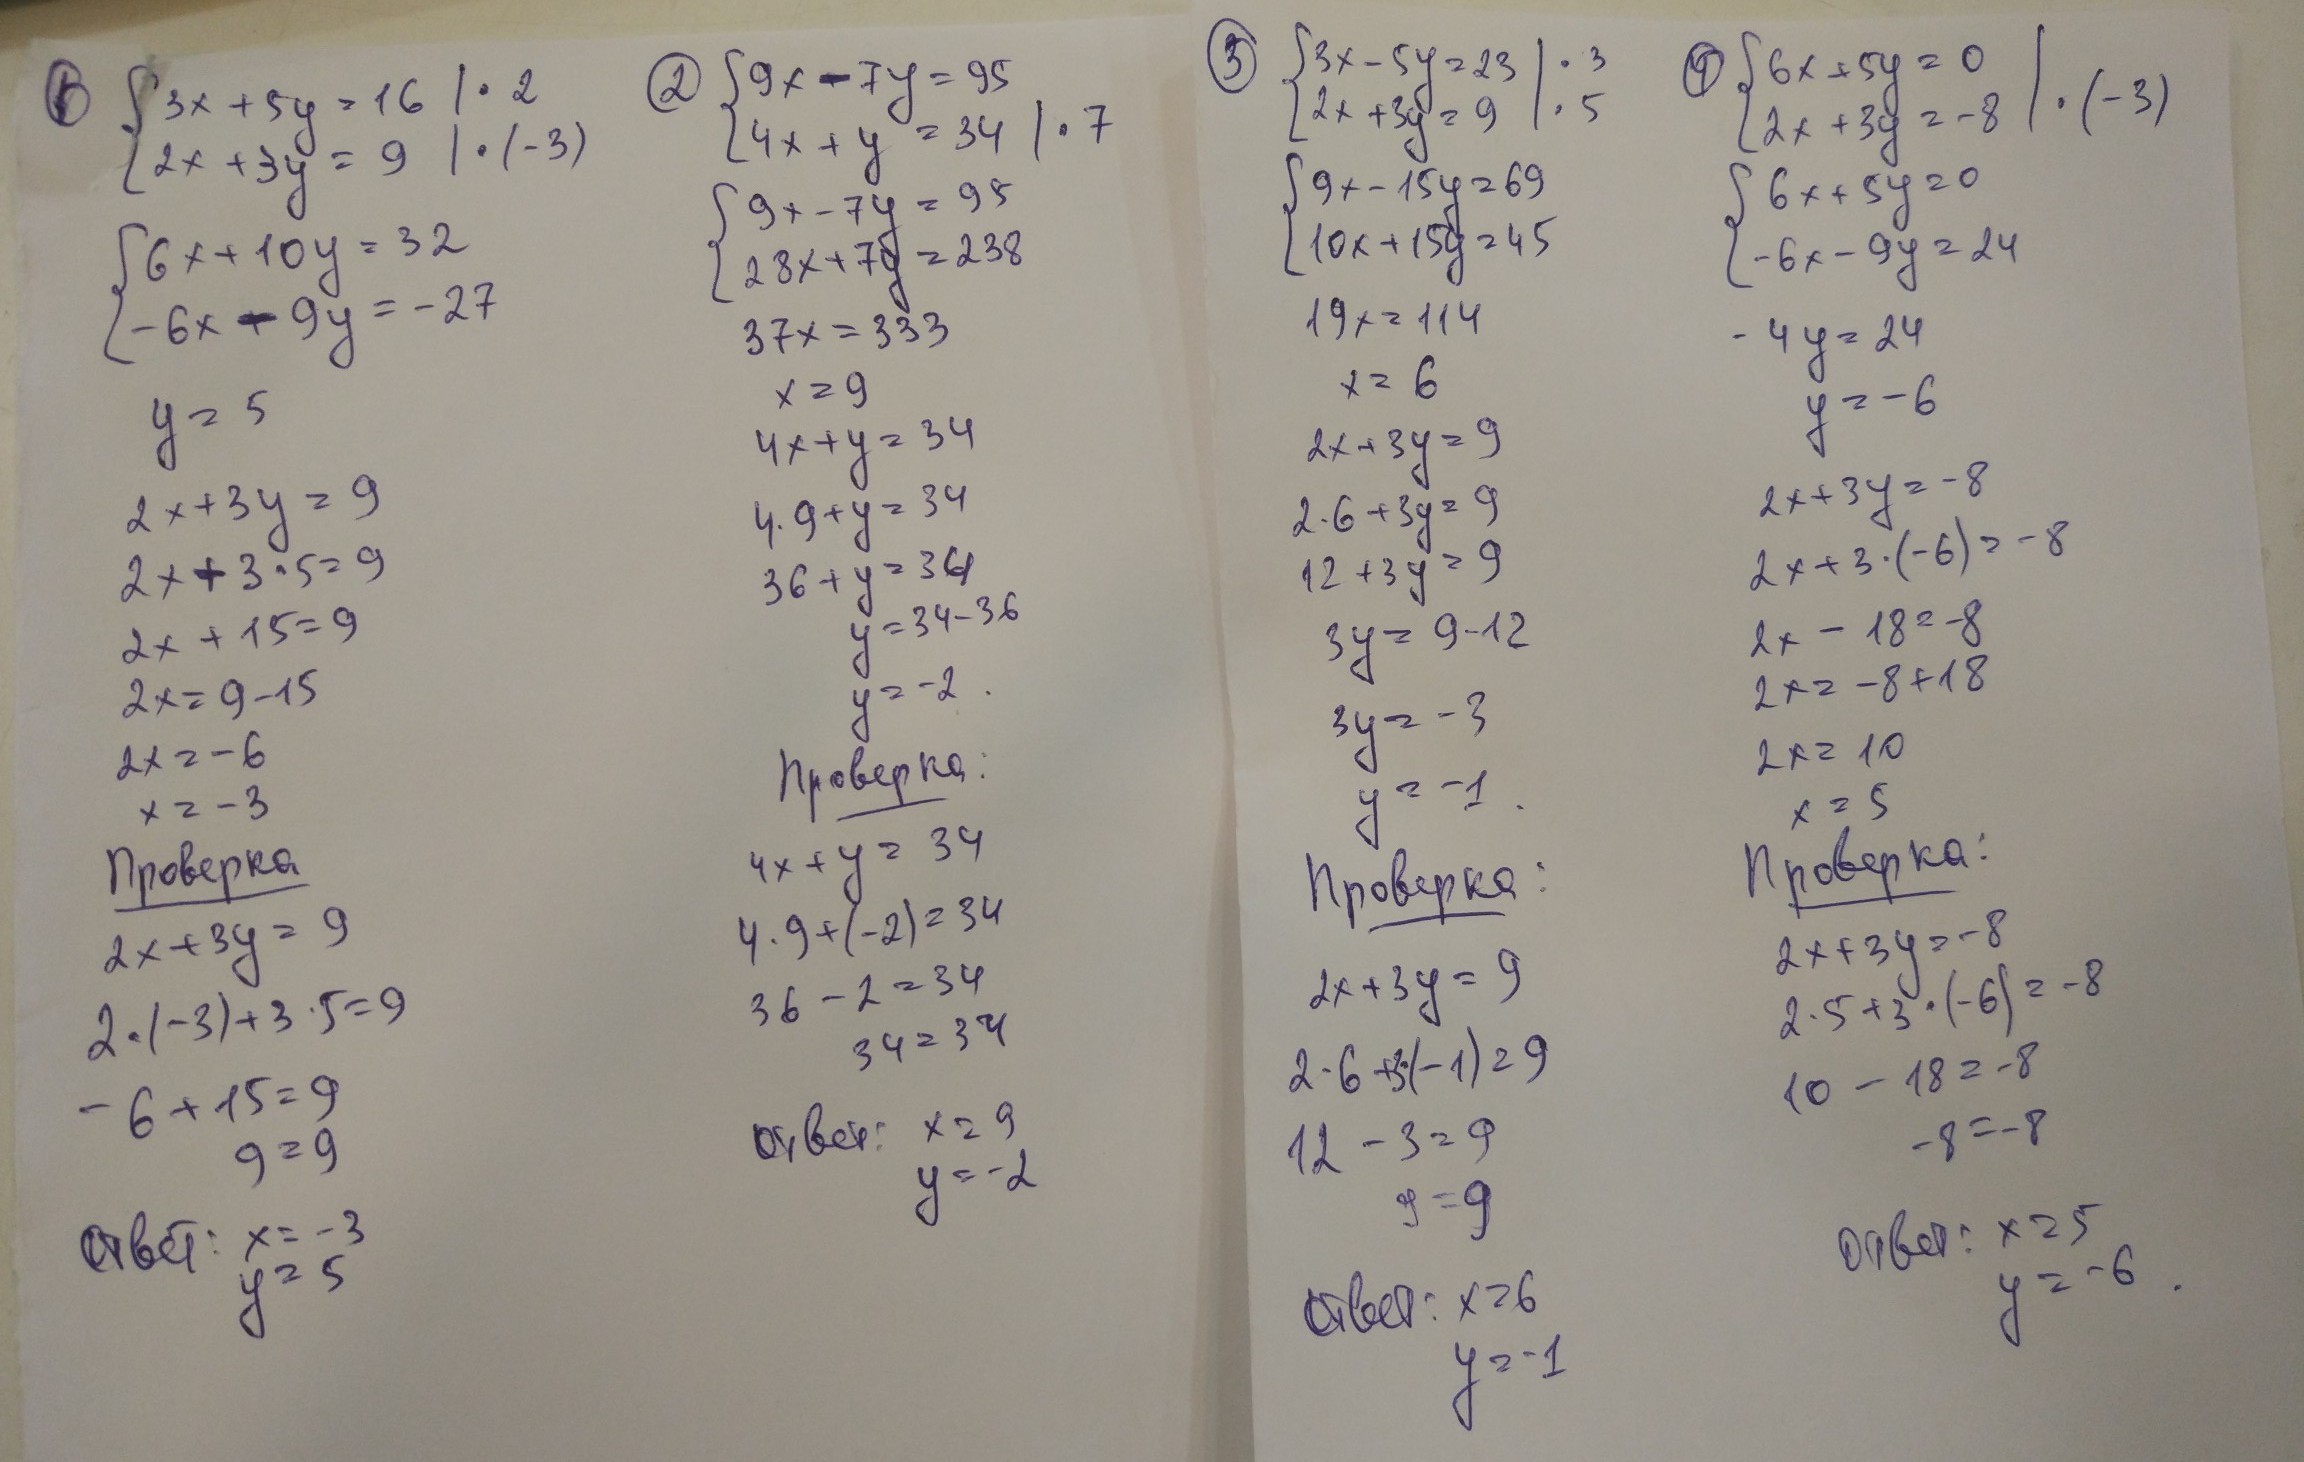 ① {3x + 5y = 16 | · 2
{2x + 3y = 9 | · (-3)
{6x + 10y = 32
{-6x - 9y = -27
y = 5
2x + 3y = 9
2x + 3 · 5 = 9
2x + 15 = 9
2x = 9 - 15
2x = -6
x = -3
Проверка
2x + 3y = 9
2 · (-3) + 3 · 5 = 9
- 6 + 15 = 9
9 = 9
Ответ: x = -3
y = 5
② {9x - 7y = 95
{4x + y = 34 | · 7
{9x - 7y = 95
{28x + 7y = 238
37x = 333
x = 9
4x + y = 34
4 · 9 + y = 34
36 + y = 34
y = 34 - 36
y = -2.
Проверка:
4x + y = 34
4 · 9 + (-2) = 34
36 - 2 = 34
34 = 34
Ответ: x = 9
y = -2
③ {3x - 5y = 23 | · 3
{2x + 3y = 9 | · 5
{9x - 15y = 69
{10x + 15y = 45
19x = 114
x = 6
2x + 3y = 9
2 · 6 + 3y = 9
12 + 3y = 9
3y = 9 - 12
3y = -3
y = -1.
Проверка:
2x + 3y = 9
2 · 6 + 3·(-1) = 9
12 - 3 = 9
9 = 9
Ответ: x = 6
y = -1
④ {6x + 5y = 0
{2x + 3y = -8 | · (-3)
{6x + 5y = 0
{-6x - 9y = 24
-4y = 24
y = -6
2x + 3y = -8
2x + 3 · (-6) = -8
2x - 18 = -8
2x = -8 + 18
2x = 10
x = 5
Проверка:
2x + 3y = -8
2 · 5 + 3 · (-6) = -8
10 - 18 = -8
-8 = -8
Ответ: x = 5
y = -6.